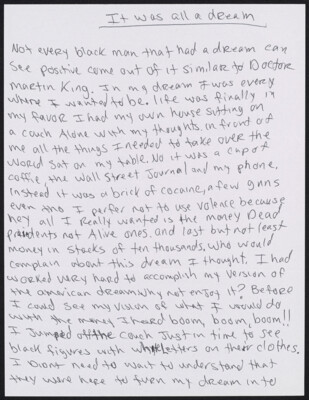 It was all a dream
Not every black man that had a dream can
see positive come out of it similar to Doctore
martin King. In my dream I was every
where I wanted to be. life was finally in
my favor I had my own house sitting on
a couch Alone with my thoughts, in front of
me all the things I needed to take over the
world sat on my table. No it was a cup of
coffie, the Wall Street Journal and my phone,
instead it was a brick of cocaine, a few guns
even tho I perfer not to use volence because
hey all I really wanted is the money Dead
presidents not Alive ones. and last but not least
money in stacks of ten thousands, who would
complain about this dream I thought. I had
worked very hard to accomplish my version of
the american dream why not enjoy it? Before
I could see my vision of what I would do
with the money I heard boom, boom, boom!!
I Jumped off the couch Just in time to see
black figures with letters on their clothes.
I Didnt need to wait to understand that
they were here to turn my dream into